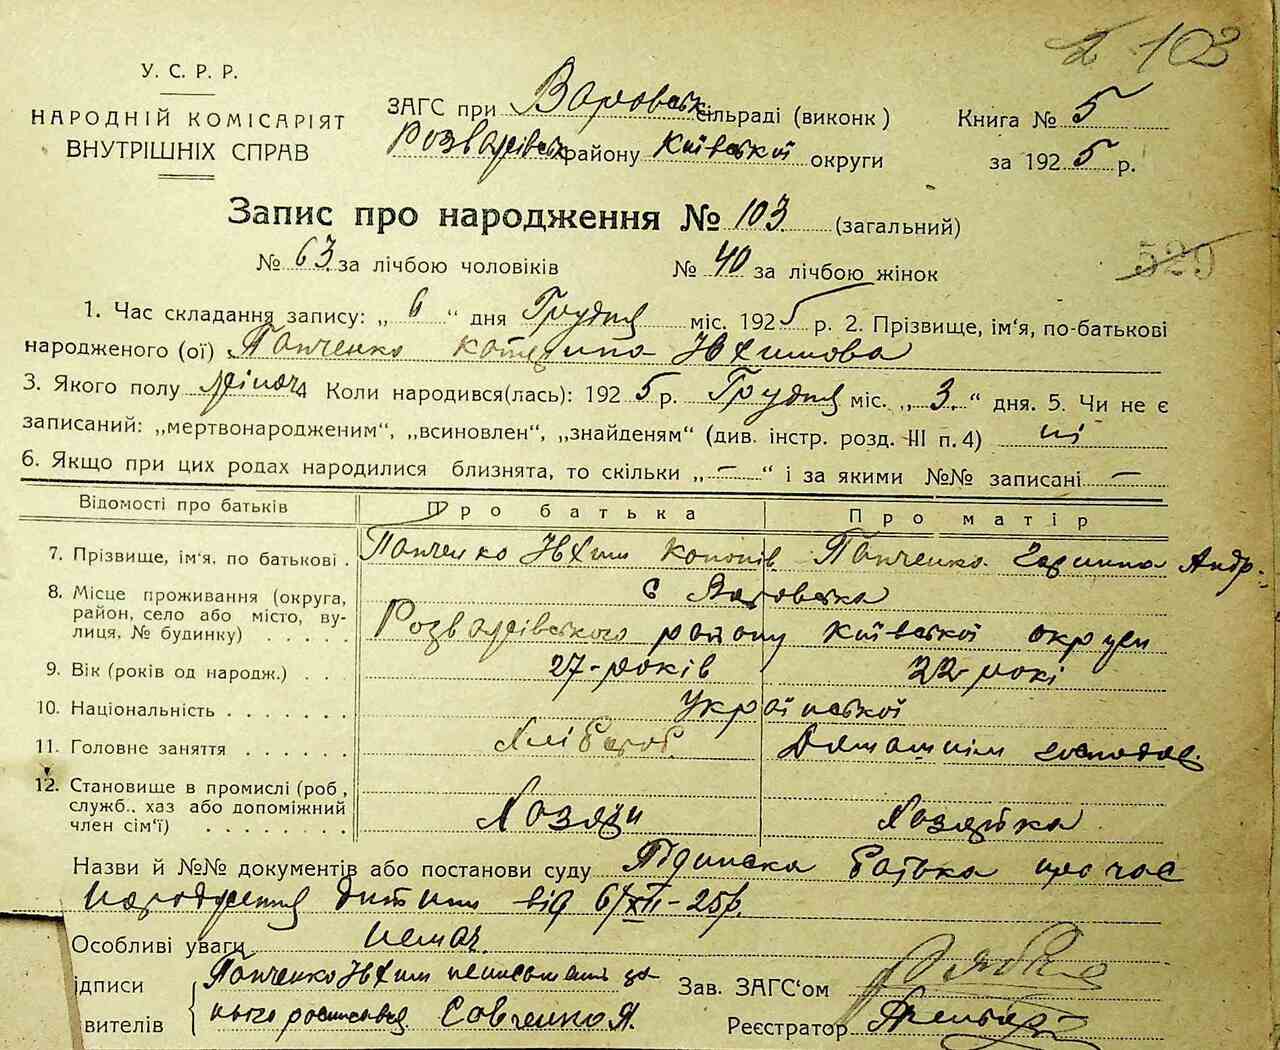 103
У. С. Р. Р.
НАРОДНІЙ КОМІСАРІЯТ
ВНУТРІШНІХ СПРАВ
ЗАГС при Варовськ сільраді (виконк)
Розважівськ району Київської округи
Книга № 5
за 1925 р.
Запис про народження № 103 (загальний)
№ 63 за лічбою чоловіків № 40 за лічбою жінок
529
1. Час складання запису: „ 6 “ дня Грудня міс. 1925 р. 2. Прізвище, ім‘я, по-батькові
народженого (ої) Панченко КатеринаЮвхимова
3. Якого полу жіноч Коли народився(лась): 1925 р. Грудня міс. „ 3 “ дня. 5. Чи не є
записаний: „мертвонародженим“, „всиновлен“, „знайденям“ (див. інстр. розд. III п. 4) ні
6. Якщо при цих родах народилися близнята, то скільки „ — “ і за якими №№ записані —
Відомості про батьків Про батька Про матір
7. Прізвище, ім‘я, по батькові . Панченко Ювхим Кононів Панченко Андр.
8. Місце проживання (округа, район, село або місто, вулиця, № будинку) . . . . . с Варовська
Розважівського району Київської округи
9. Вік (років од народж.) . . 27 років 22 рокі
10. Національність . . . . . . . Української
11. Головне заняття . . . . . . Хлібороб. Домашнім господар.
12. Становище в промислі (роб, служб., хаз або допоміжний член сім‘ї) . . . . . . . Хозяїн Хозяйка
Назви й №№ документів або постанови суду Підписка батька про час
народження дитини від 6/XII-25р.
Особливі уваги немає.
ідписи Панченко Ювхим неписьмен за
вителів нього росписався Савченко Я.
Зав. ЗАГС‘ом
Реєстратор